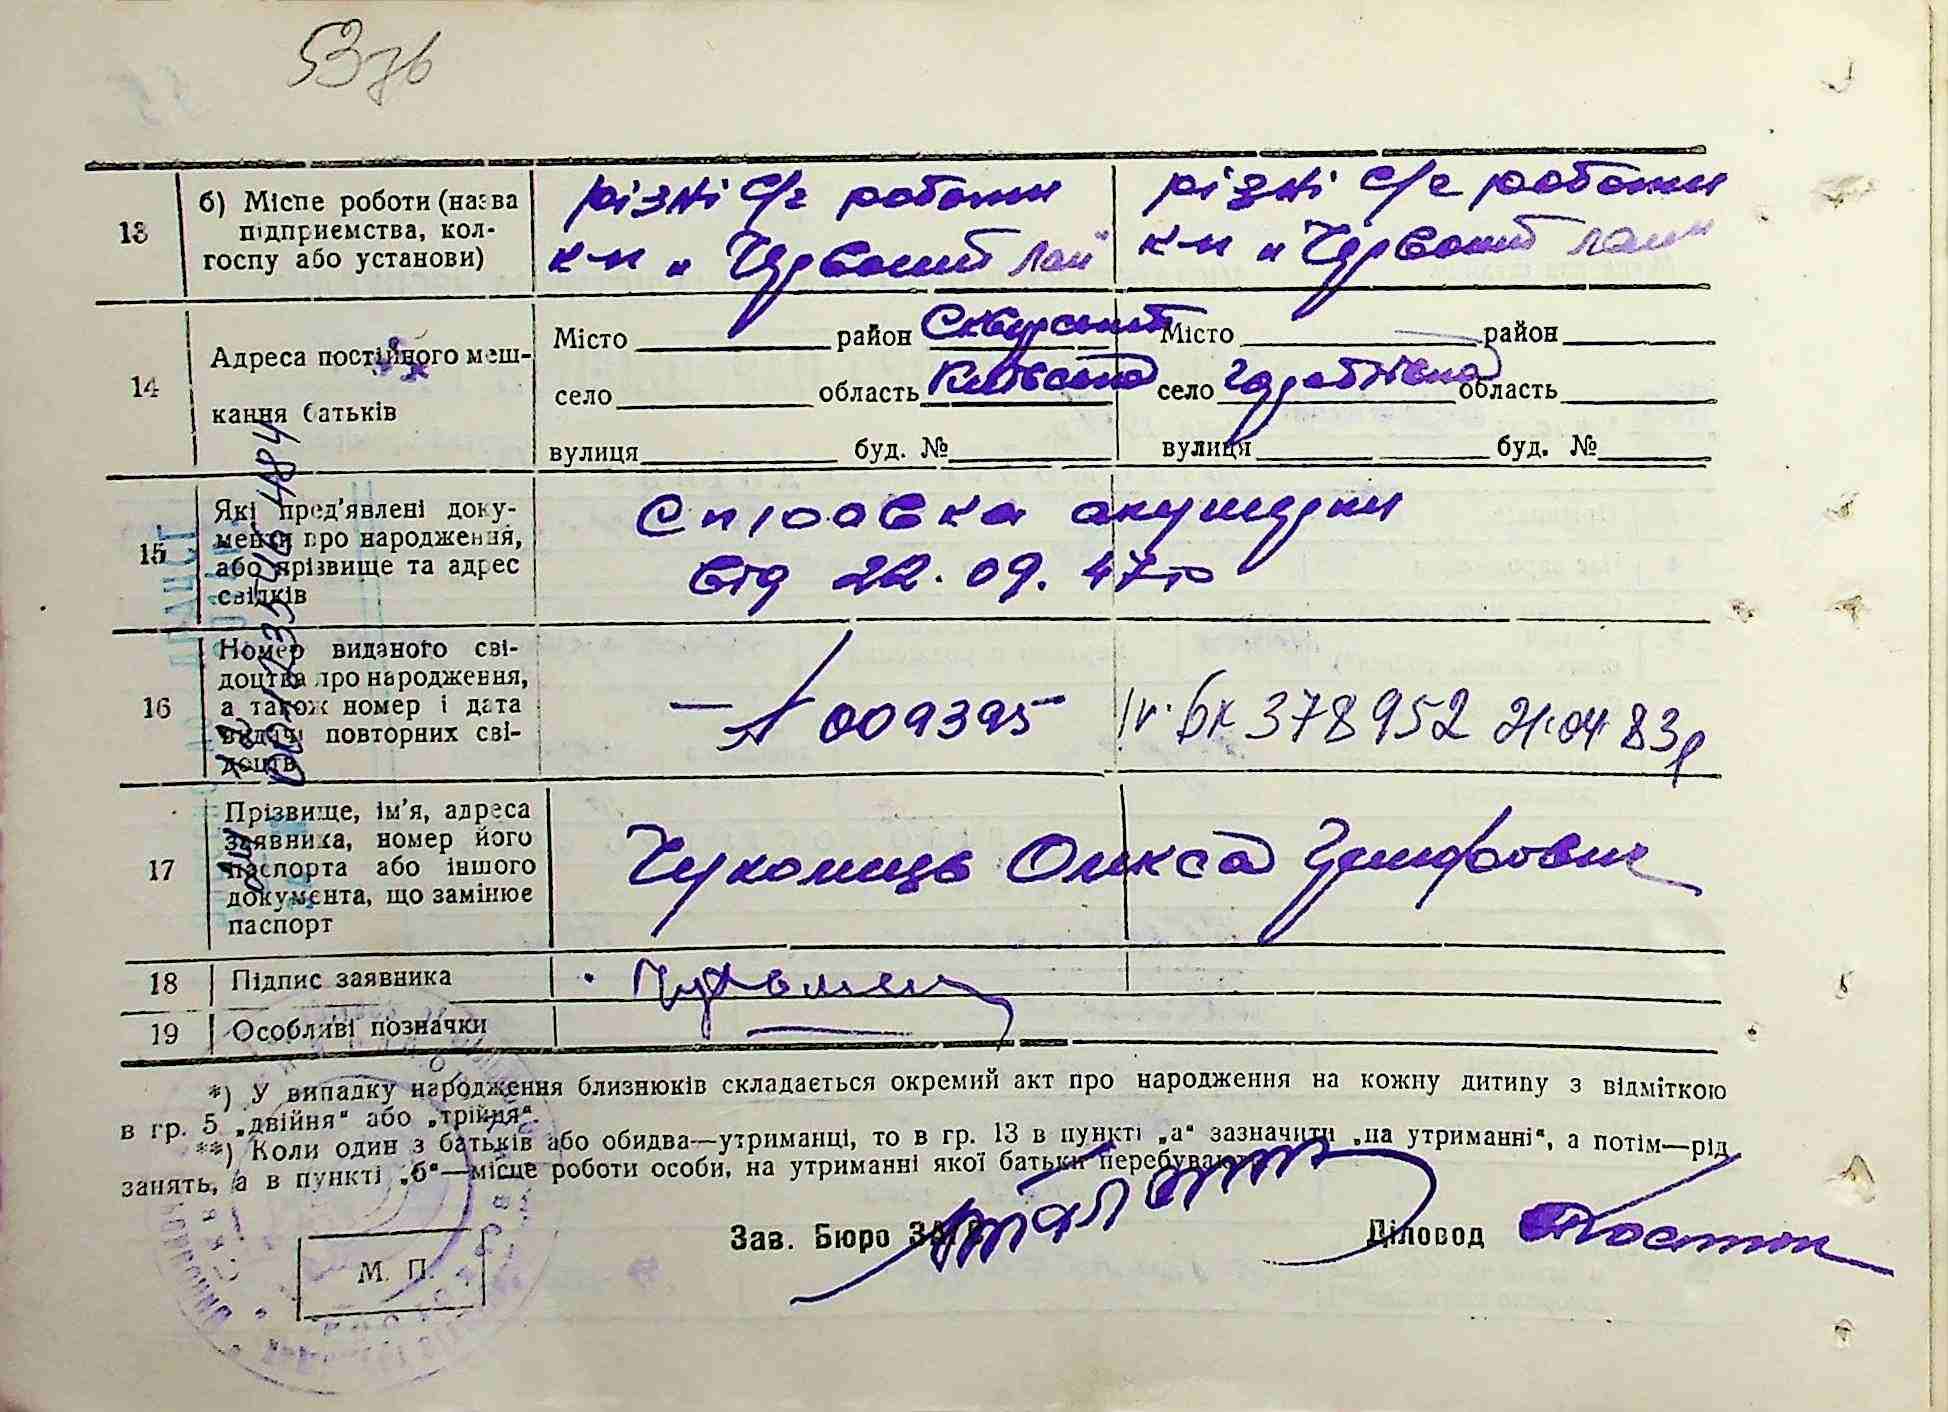 53 зв
13
б) Місце роботи (назва
підприємства, кол-
госпу або установи)
різні с/г роботи
к-п „Червоний лан"
різні с/г роботи
к-п „Червоний лан"
14
Адреса постійного меш-
кання батьків
Місто район Сквирський
село область Київська
вулиця буд. №
Місто район
село область
вулиця буд. №
15
Які пред'явлені доку-
менти про народження,
або прізвище та адрес
свідків
Справка акушерки
від 22.09.47р
16
Номер виданого сві-
доцтва про народження,
а також номер і дата
видачі повторних сві-
доцтв
009395
378952 21.04.83р
17
Прізвище, ім'я, адреса
заявника, номер його
паспорта або іншого
документа, що замінює
паспорт
Олекса
18
Підпис заявника
19
Особливі позначки
*) У випадку народження близнюків складається окремий акт про народження на кожну дитину з відміткою
в гр. 5 „двійня“ або „трійня“.
**) Коли один з батьків або обидва—утриманці, то в гр. 13 в пункті „а“ зазначити „на утриманні“, а потім—рід
занять, а в пункті „б“—місце роботи особи, на утриманні якої батьки перебувають.
Зав. Бюро ЗАГС
Діловод
М. П.